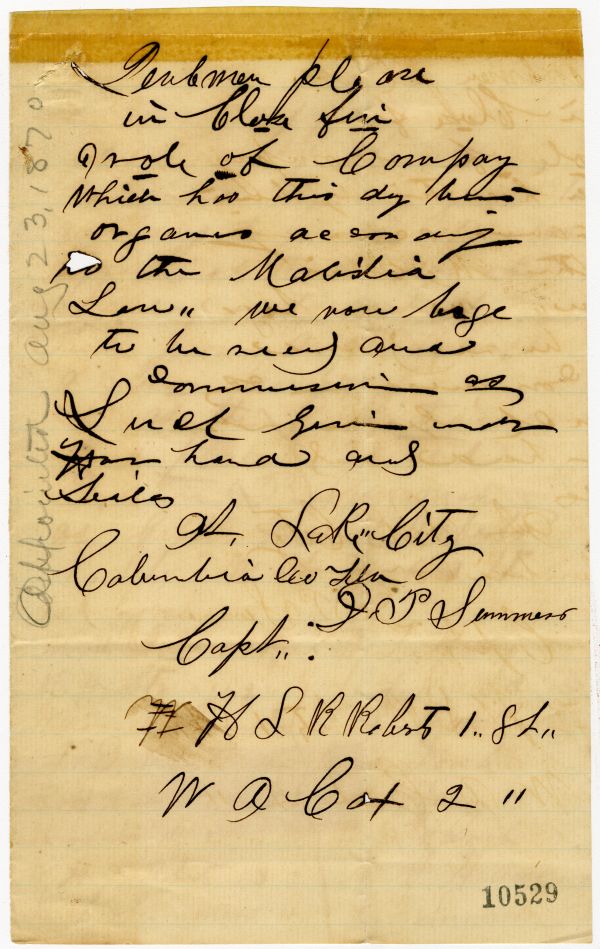 Gentlmen please
in Close fin
role of Compay
Which has this dy
organis according
to the
Law" we now bege
to be and
Commission as
Such under
hand and
Seiles
At, Lake City
Columbia Co Fla
Summers
Capt".
H L R Roberts 1" Lt"
W A Cox 2 "
Appointed Aug 23, 1870
10529